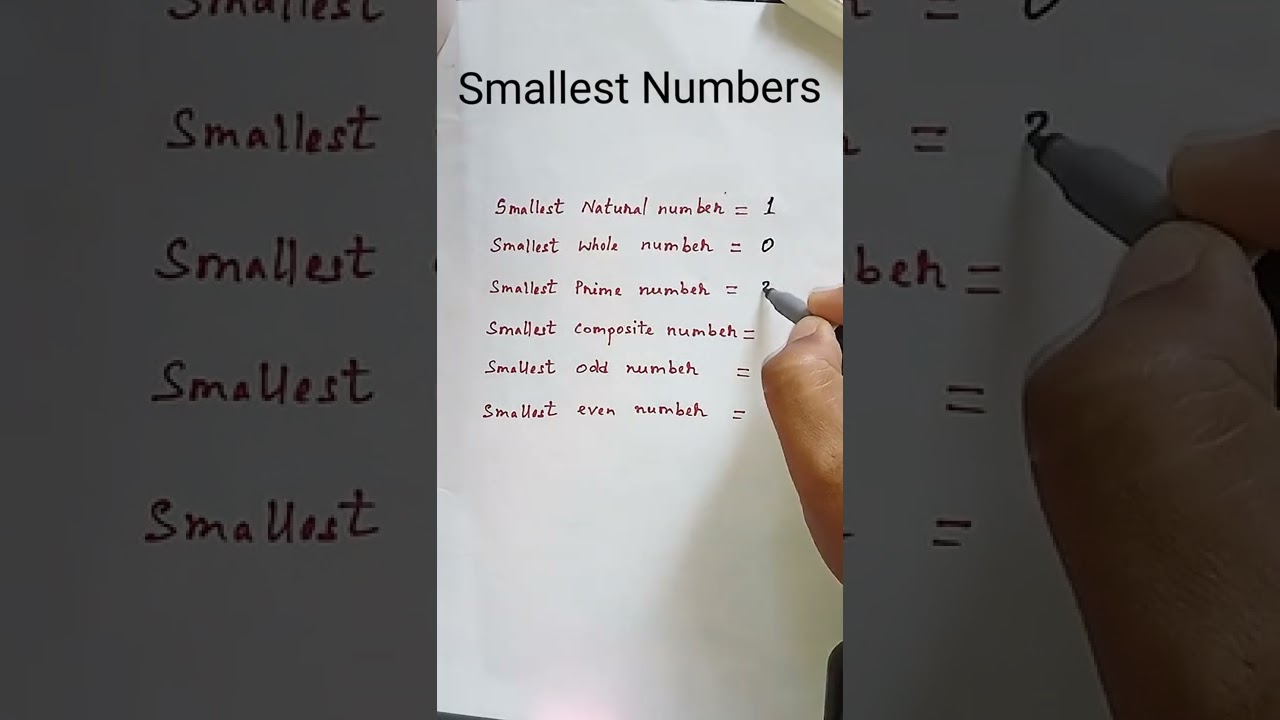 Smallest Numbers
Smallest Natural number = 1
Smallest whole number = 0
Smallest Prime number = 2
Smallest composite number =
Smallest odd number =
Smallest even number =